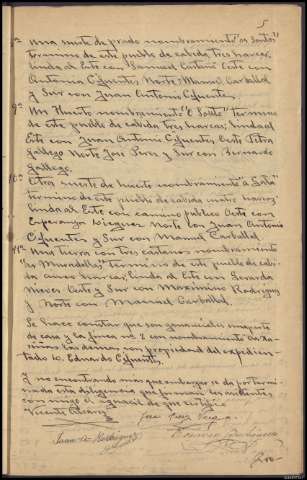 5
8ª Una suerte de prado nombramiento "os Soutos"
termino de este pueblo de cabida tres areas,
linda al Este con Manuel Oeste con
Antonia Cifuentes, Norte Manuel Carballal
y Sur con Juan Antonio Cifuentes.
9ª Un Huerto nombramiento "O Souto" termino
de este pueblo de cabida tres areas, linda al
Este con Juan Antonio Cifuentes, Oeste Petra
Gallego Norte José Peres y Sur con Fernando
Gallego.
10ª Otra suerte de huerto nombramiento "a
termino de este pueblo de cabida cuatro areas
linda al Este con camino publico Oeste con
Esperanza Norte con Juan Antonio
Cifuentes y Sur con Manuel Carballal.
11ª Una tierra con tres castaños nombramiento
"as Muradellas" termino de este pueblo de cabi-
da cinco areas, linda al Este con Gerardo
Nieves Oeste y Sur con Maximino Rodriguez
y Norte con Manuel Carballal.
Se hace constar que son gananciales una parte
de casa y la finca nº 1 con nombramiento
las demas son propiedad del expedien-
tado D. Eduardo Cifuentes.
Y no encontrando mas que embargar se da por termi-
nada esta diligencia que firman los asistentes
conmigo el aguacil de que certifico
Vicente
José
Juan A. Rodriguez